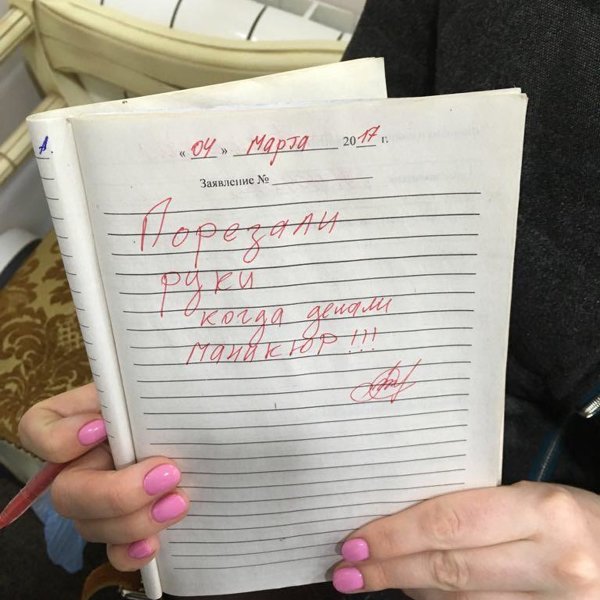 « 04 » Марта 2017 г.
Заявление №
Порезали
руки
когда делали
маникюр!!!